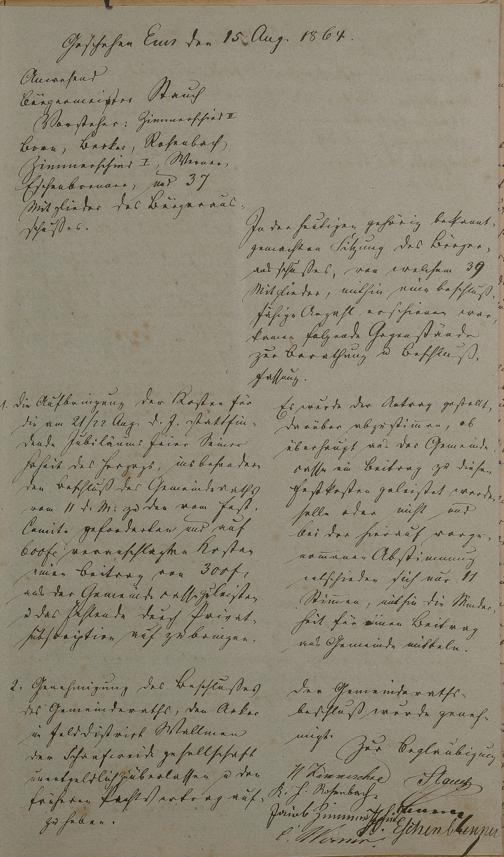 Geschehen Ems den 15. Aug. 1864.
Anwesend
Bürgermeister Stauch
Vorsteher: Zimmerschied II
Born, Becker, Rosenbach,
Zimmerschied I, Werner,
Eschenbrenner, und 37
Mitglieder des Bürgeraus-
schusses.
In der heutigen gehörig bekannt
gemachten Sitzung des Bürger-
ausschusses, von welchem 39
Mitglieder, mithin eine beschluß-
fähige Anzahl erschienen war
kamen folgende Gegenstände
zur Berathung u Beschluß-
fassung.
1. die Aufbringung der Kosten für
die am 21/22 Aug. d. J. stattfin-
dende Jubiläums feier Seiner
Hoheit des Herzogs, insbesondere
den Beschluß des Gemeinderaths
vom 11 d. M. zu den vom Fest-
Comite geforderten und auf
600 fl veranschlagten Kosten
einen Beitrag von 300 fl,
aus der Gemeindecasse zu leisten
u das Fehlende durch Privat-
subscription aufzubringen.
Es wurde der Antrag gestellt,
darüber abzustimmen, ob
überhaupt aus der Gemeinde-
casse ein Beitrag zu diesen
Festkosten geleistet werden
solle oder nicht und
bei der hierauf vorge-
nommenen Abstimmung
entschieden sich nur 11
Stimmen, mithin die Minder-
heit für einen Beitrag
aus Gemeindemitteln.
2. Genehmigung des Beschlusses
des Gemeinderaths, den Acker
im Felddistrict Wallmen
der gesellschaft
unentgeldlich überlassen u den
früheren Pachtvertrag auf-
zuheben.
Der Gemeinderaths-
beschluß wurde geneh-
migt.
Zur Beglaubigung
Stauch
W Zimmerschied
K. H. Rosenbach
Jacob Zimmerschied
Eschenbrenner
C. Werner